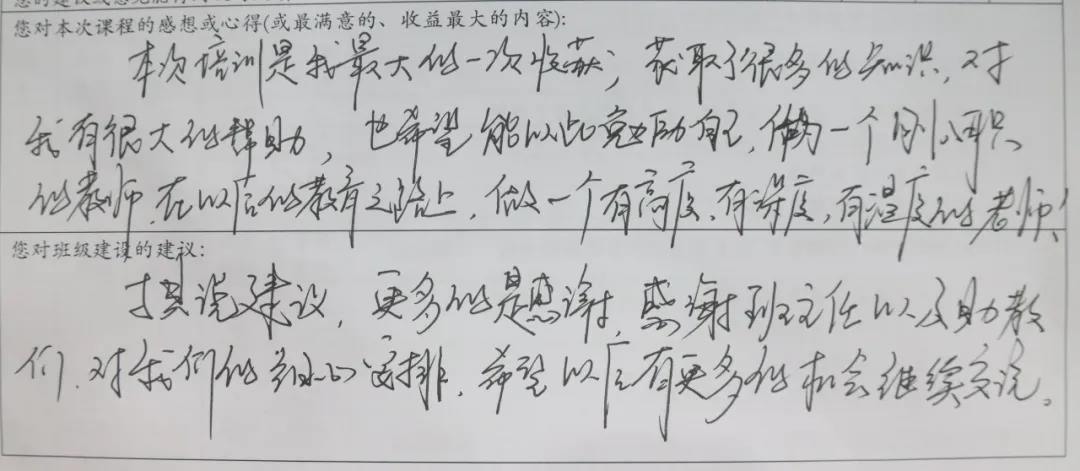 您对本次课程的感想或心得(或最满意的、收益最大的内容):
本次培训是我最大的一次收获,获取了很多的知识,对
我有很大的帮助,也希望能以此勉励自己,做为一个刚入职
的教师,在以后的教育之路上,做一个有高度、有深度,有温度的老师!
您对班级建设的建议:
与其说建议,更多的是感谢,感谢班主任以及助教
们,对我们的细心安排,希望以后有更多的机会继续交流。